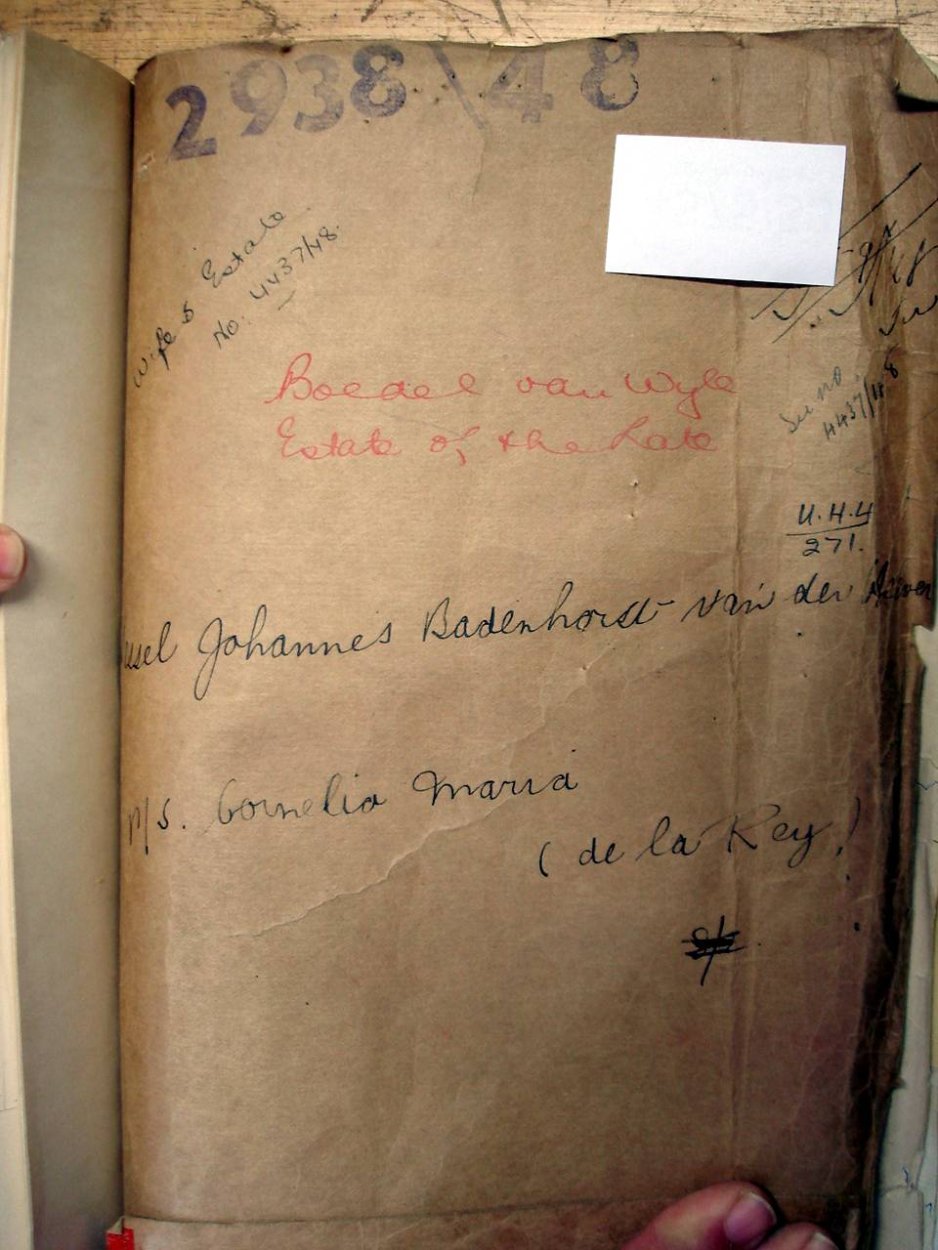 2938\48
Wife's Estate
No. 4437/48.
Boedel van Wyle
Estate of the Late
See no.
4437/48
U.H.4
271.
Johannes Badenhorst van der
n/s. Cornelia Maria
(de la Rey)